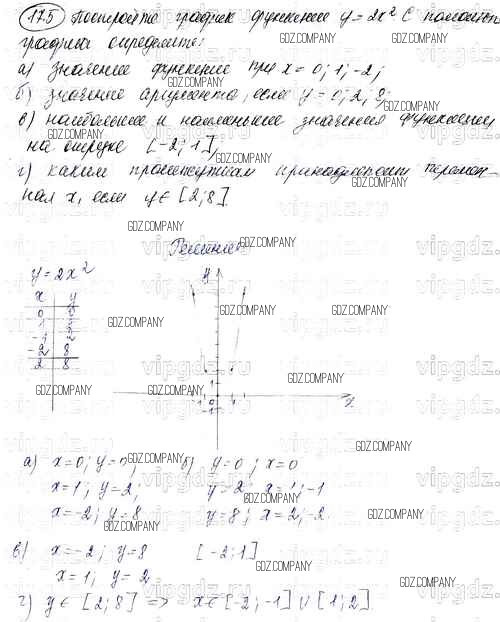 17.5 Постройте график функции y = 2x² С помощью
графика определите:
а) значение функции при x = 0; 1; -2;
б) значение аргумента, если y = 0; 2; 8;
в) наибольшее и наименьшее значения функции
на отрезке [-2; 1]
г) каким промежуткам принадлежит перемен-
ная x, если y ∈ [2; 8].
Решение
y = 2x²
x y
0 0
1 2
-1 2
-2 8
2 8
y
x
а) x=0; y=0, б) y=0; x=0
x=1; y=2; y=2; x=1; -1
x=-2; y=8 y=8; x=2; -2
в) x=-2; y=8 [-2; 1]
x=1; y=2
г) y ∈ [2; 8] => x ∈ [-2; -1] ∪ [1; 2].
GDZ.COMPANY
vipgdz.ru